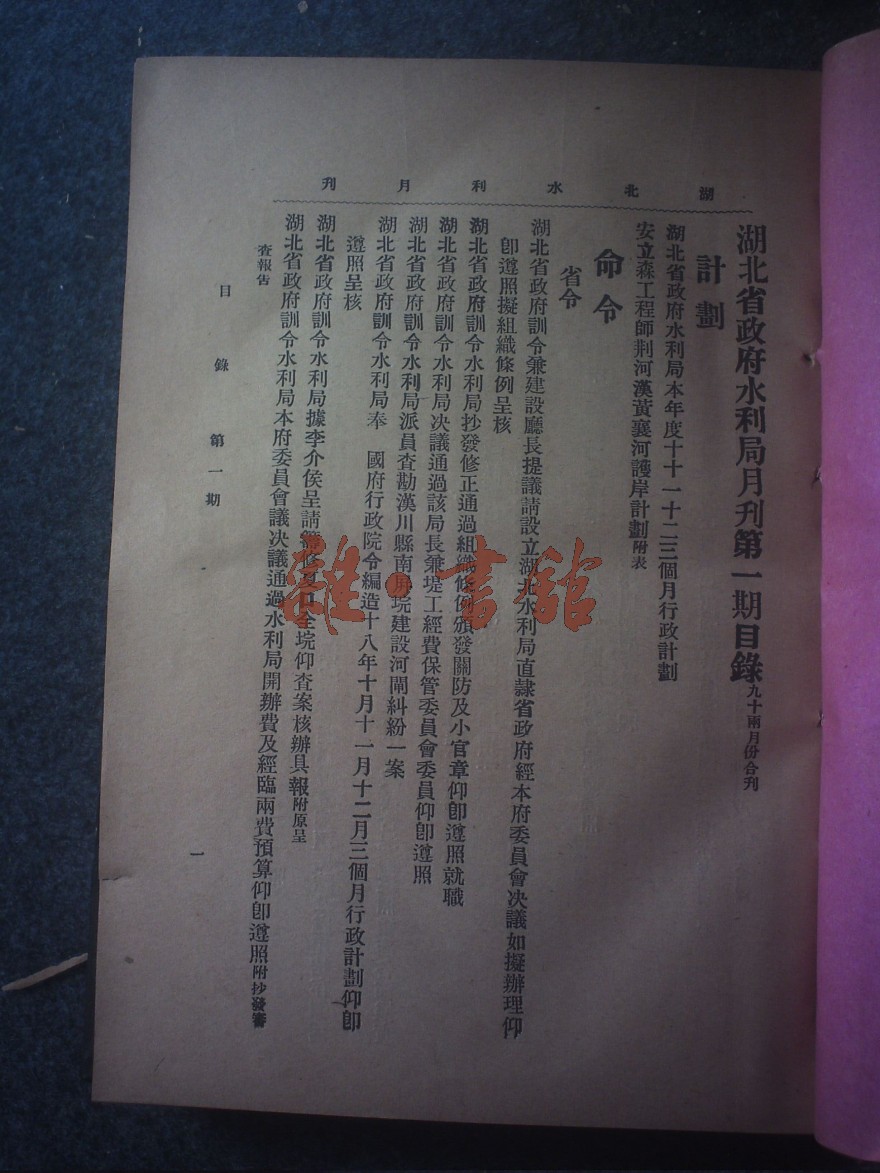 湖北水利月刊
湖北省政府水利局月刊第一期目錄九十兩月份合刊
計劃
湖北省政府水利局本年度十十一十二三個月行政計劃
安立森工程師荆河漢黃襄河護岸計劃附表
命令
省令
湖北省政府訓令兼建設廳長提議請設立湖北水利局直隸省政府經本府委員會决議如擬辦理仰
卽遵照擬組織條例呈核
湖北省政府訓令水利局抄發修正通過組織條例頒發關防及小官章仰卽遵照就職
湖北省政府訓令水利局决議通過該局長兼堤工經費保管委員會委員仰卽遵照
湖北省政府訓令水利局派員查勘漢川縣南屏垸建設河閘糾紛一案
湖北省政府訓令水利局奉 國府行政院令編造十八年十月十一月十二月三個月行政計劃仰卽
遵照呈核
湖北省政府訓令水利局據李介侯呈請籌修夏口全垸仰查案核辦具報附原呈
湖北省政府訓令水利局本府委員會議决議通過水利局開辦費及經臨兩費預算仰卽遵照附抄發審
查報告
目錄 第一期
一
雜·書館